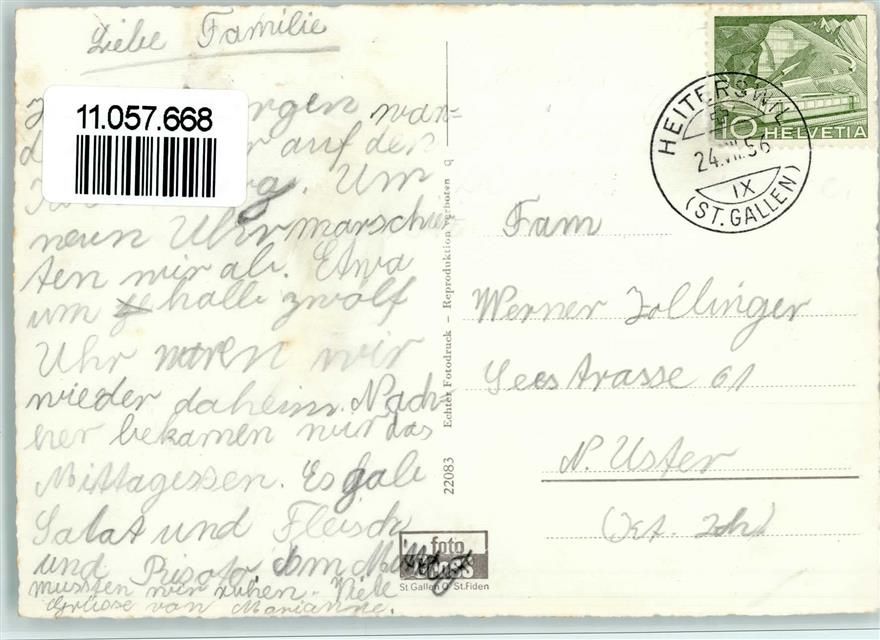 Liebe Familie
11.057.668
rgen wan-
auf den
Um
neun Uhr marschier
ten wir ab. Etwa
um halb zwölf
Uhr waren wir
wieder daheim. Nach-
her bekamen wir das
Mittagessen. Es gab
Salat und Fleisch
und Risoto. Am Mittag
mussten wir ruhen. Viele
Grüsse von Marianne.
22083 Echter Fotodruck – Reproduktion verboten q
foto
GROSS
St Gallen O St.Fiden
10 HELVETIA
HEITERSWIL
24.VII.56
IX
(ST. GALLEN)
Fam
Werner Zollinger
Seestrasse 61
N. Uster
(Kt. Zch)